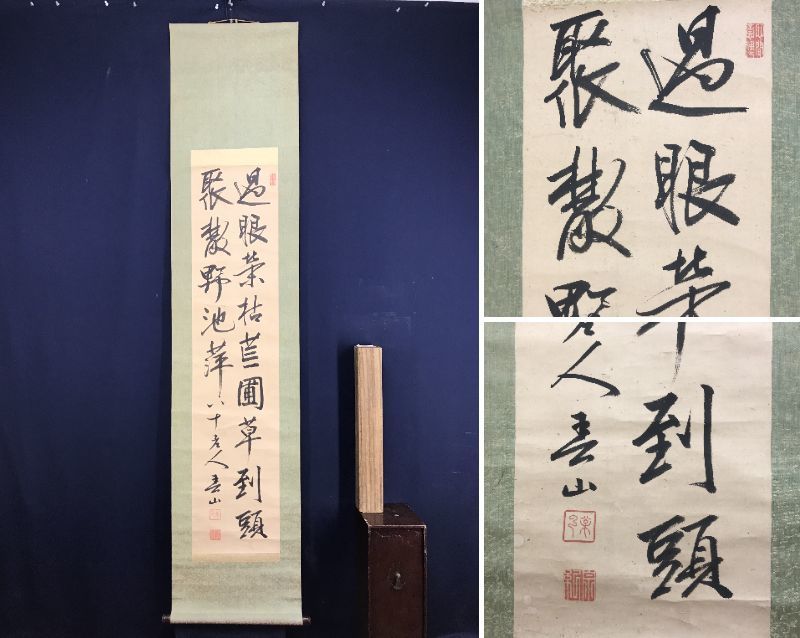 過眼榮枯荒圃草到頭
聚散野池萍八十老人春山
過眼
聚散
人春山
到頭